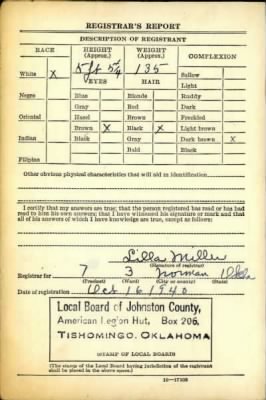 REGISTRAR'S REPORT
DESCRIPTION OF REGISTRANT
RACE HEIGHT (Approx.) WEIGHT (Approx.) COMPLEXION
White X 5 ft 5 135 Sallow
EYES HAIR Light
Negro Blue Blonde Ruddy
Gray Red Dark
Oriental Hazel Brown Freckled
Brown X Black X Light brown
Indian Black Gray Dark brown X
Bald Black
Filipino
Other obvious physical characteristics that will aid in identification
I certify that my answers are true; that the person registered has read or has had
read to him his own answers; that I have witnessed his signature or mark and that
all of his answers of which I have knowledge are true, except as follows:
Lilla Miller
(Signature of registrar)
Registrar for 7 3 Norman Okla
(Precinct) (Ward) (City or county) (State)
Date of registration Oct 16 1940
Local Board of Johnston County,
American Legion Hut, Box 206,
TISHOMINGO, OKLAHOMA
STAMP OF LOCAL BOARD
(The stamp of the Local Board having jurisdiction of the registrant
shall be placed in the above space.)